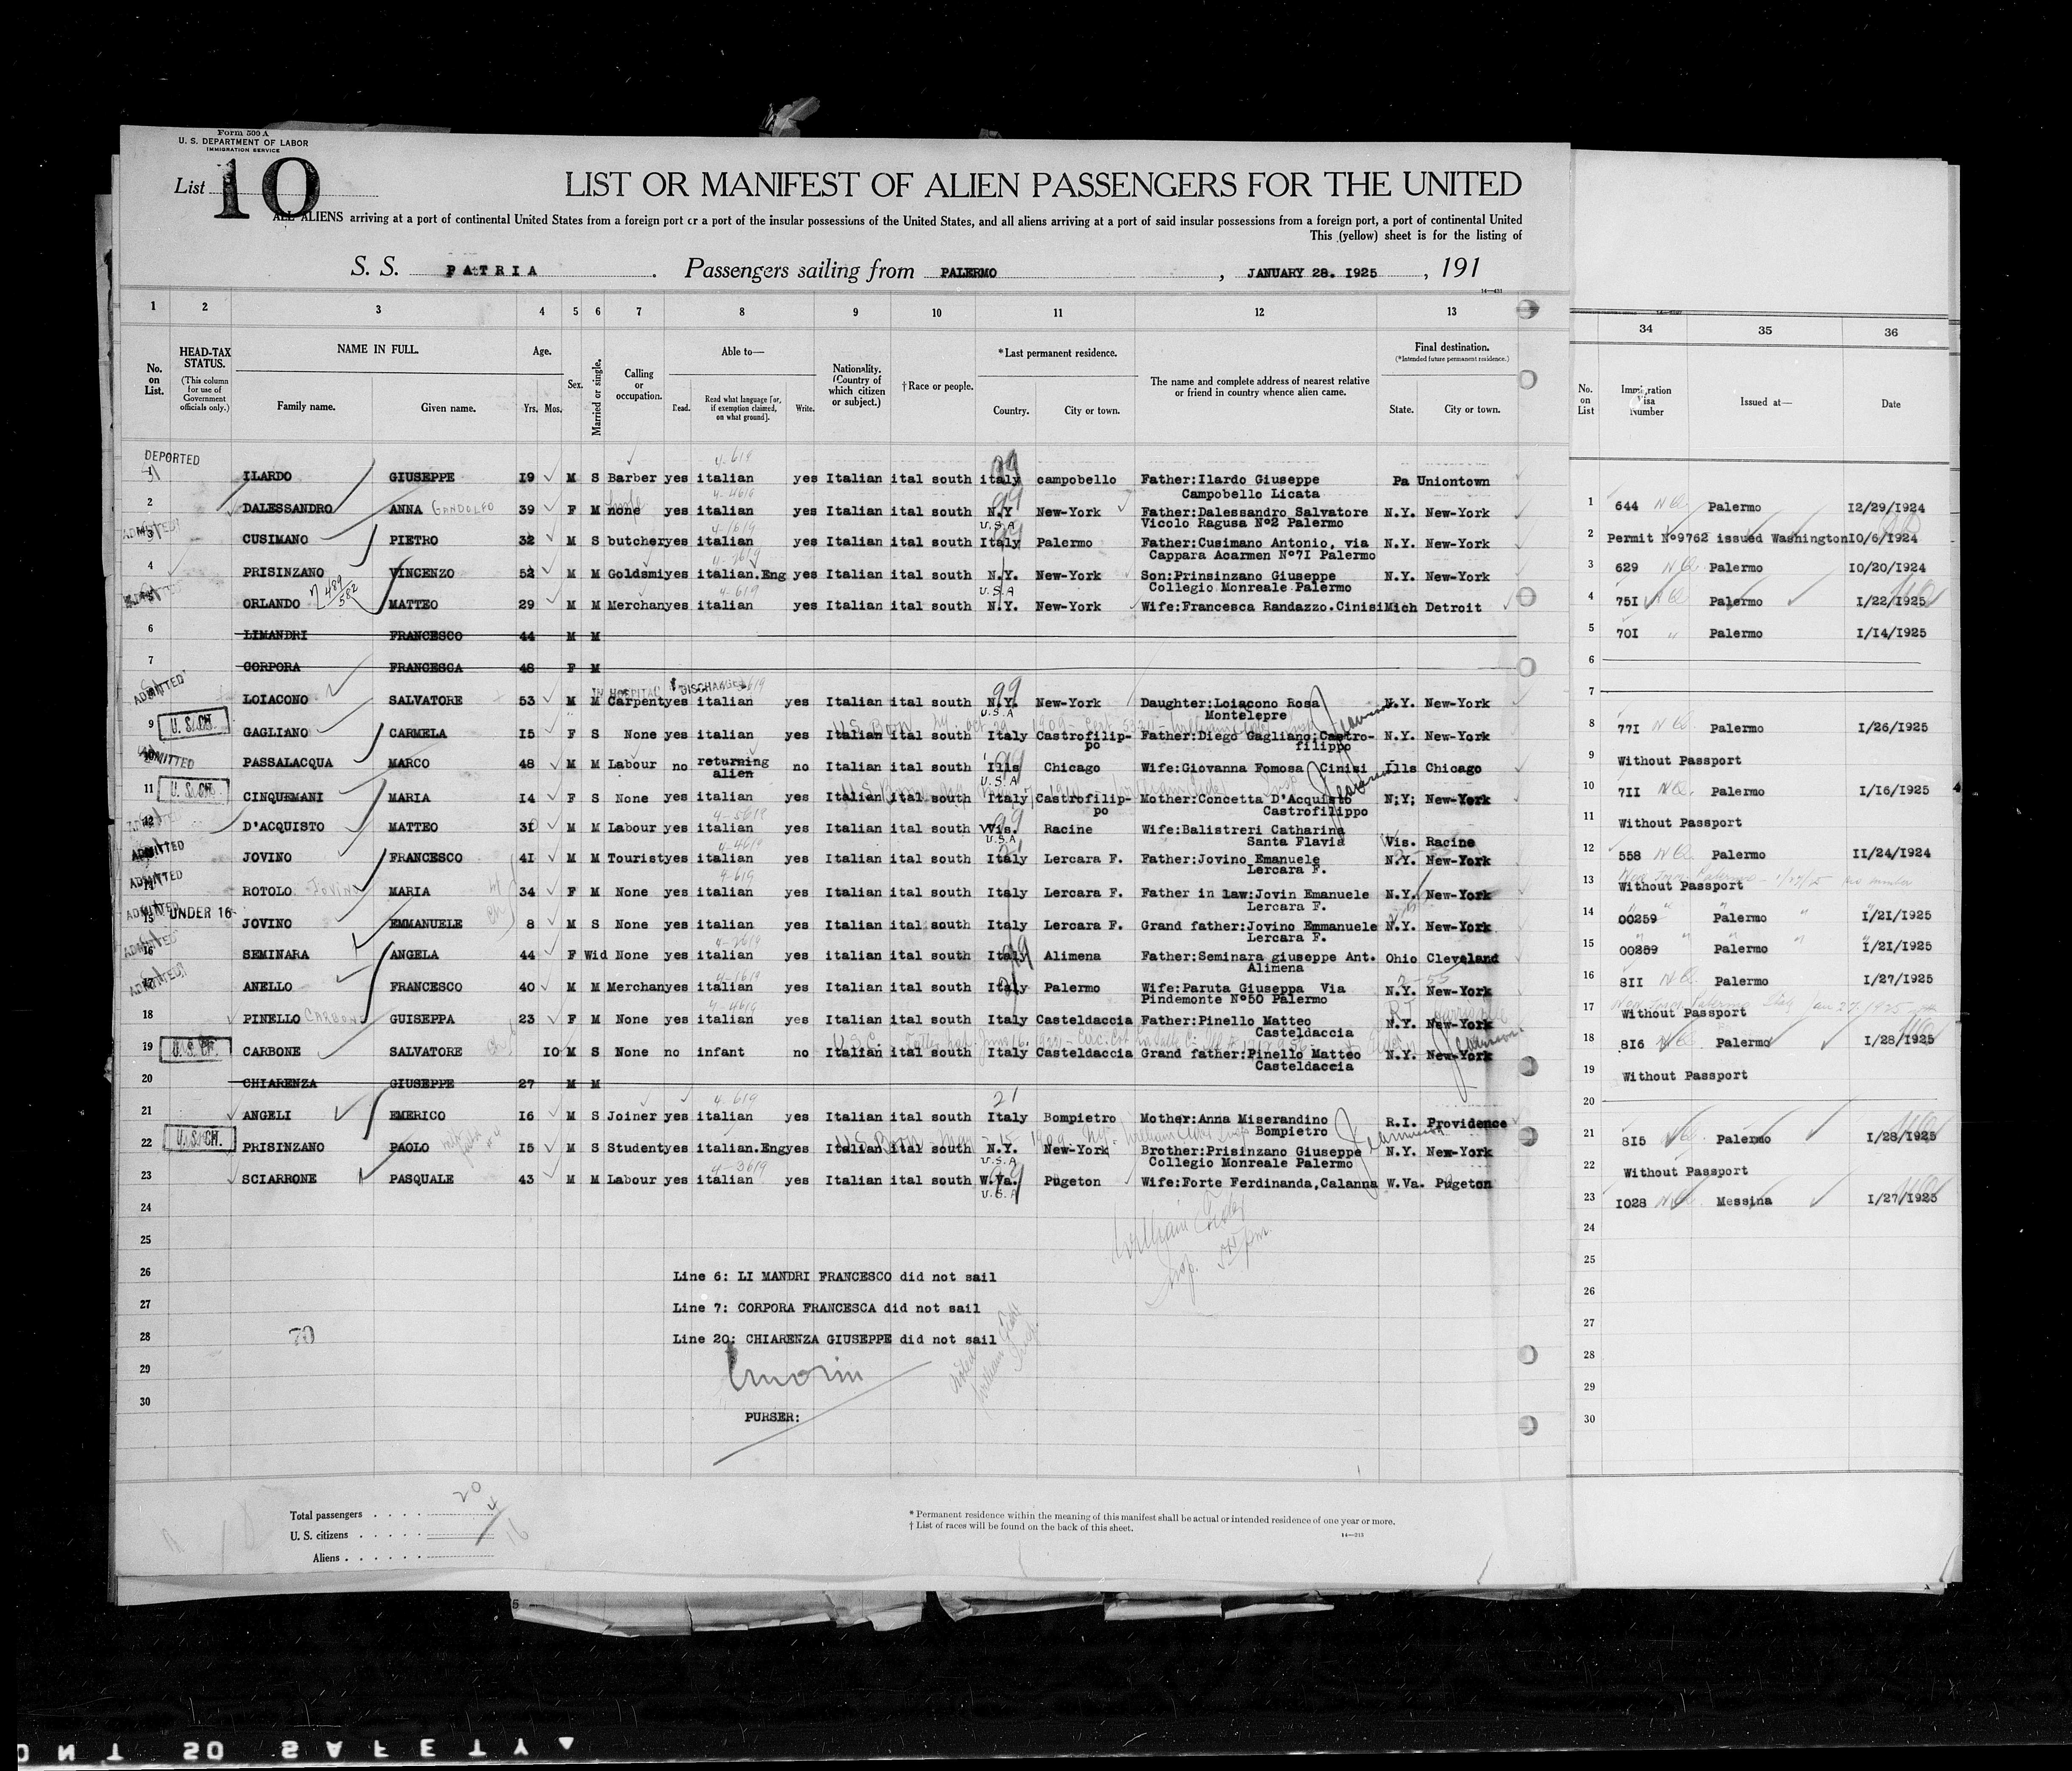 Form 500 A
U. S. DEPARTMENT OF LABOR
IMMIGRATION SERVICE
List 10
LIST OR MANIFEST OF ALIEN PASSENGERS FOR THE UNITED
ALL ALIENS arriving at a port of continental United States from a foreign port or a port of the insular possessions of the United States, and all aliens arriving at a port of said insular possessions from a foreign port, a port of continental United
This (yellow) sheet is for the listing of
S. S. PATRIA . Passengers sailing from PALERMO , JANUARY 28. 1925 , 191
14—431
1 2 3 4 5 6 7 8 9 10 11 12 13
No. on List.
HEAD-TAX STATUS.
(This column for use of Government officials only.)
NAME IN FULL.
Family name. Given name.
Age.
Yrs. Mos.
Sex.
Married or single.
Calling or occupation.
Able to—
Read. Read what language [or, if exemption claimed, on what ground]. Write.
Nationality. (Country of which citizen or subject.)
† Race or people.
* Last permanent residence.
Country. City or town.
The name and complete address of nearest relative or friend in country whence alien came.
Final destination.
(*Intended future permanent residence.)
State. City or town.
DEPORTED
1 ILARDO GIUSEPPE 19 M S Barber yes italian yes Italian ital south italy campobello Father:Ilardo Giuseppe Pa Uniontown
Campobello Licata
2 DALESSANDRO ANNA GANDOLFO 39 F M none yes italian yes Italian ital south N.Y New-York Father:Dalessandro Salvatore N.Y. New-York
U.S.A Vicolo Ragusa Nº2 Palermo
ADMITTED
3 CUSIMANO PIETRO 32 M S butcher yes italian yes Italian ital south Italy Palermo Father:Cusimano Antonio, via N.Y. New-York
Cappara Acarmen Nº71 Palermo
4 PRISINZANO VINCENZO 52 M M Goldsmi yes italian.Eng yes Italian ital south N.Y. New-York Son:Prinsinzano Giuseppe N.Y. New-York
U.S.A Collegio Monreale Palermo
5 ORLANDO 489/582 MATTEO 29 M M Merchan yes italian yes Italian ital south N.Y. New-York Wife:Francesca Randazzo.Cinisi Mich Detroit
6 LIMANDRI FRANCESCO 44 M M
7 CORPORA FRANCESCA 48 F M
ADMITTED IN HOSPITAL DISCHARGED
LOIACONO SALVATORE 53 M M Carpent yes italian yes Italian ital south N.Y. New-York Daughter:Loiacono Rosa N.Y. New-York
U.S.A Montelepre
9 U.S.CH. GAGLIANO CARMELA 15 F S None yes italian yes Italian ital south Italy Castrofilip- Father:Diego Gagliano;Castro- N.Y. New-York
po filippo
10 ADMITTED PASSALACQUA MARCO 48 M M Labour no returning alien no Italian ital south Ills Chicago Wife:Giovanna Fomosa Cinisi Ills Chicago
U.S.A
11 U.S.CH. CINQUEMANI MARIA 14 F S None yes italian yes Italian ital south Italy Castrofilip- Mother:Concetta D'Acquisto N;Y; New-York
po Castrofilippo
12 D'ACQUISTO MATTEO 31 M M Labour yes italian yes Italian ital south Vis. Racine Wife:Balistreri Catharina Vis. Racine
U.S.A Santa Flavia
ADMITTED JOVINO FRANCESCO 41 M M Tourist yes italian yes Italian ital south Italy Lercara F. Father:Jovino Emanuele N.Y. New-York
Lercara F.
ADMITTED 14 ROTOLO Jovino MARIA 34 F M None yes italian yes Italian ital south Italy Lercara F. Father in law:Jovin Emanuele N.Y. New-York
Lercara F.
ADMITTED 15 UNDER 16 JOVINO EMMANUELE 8 M S None yes italian yes Italian ital south Italy Lercara F. Grand father:Jovino Emmanuele N.Y. New-York
Lercara F.
ADMITTED 16 SEMINARA ANGELA 44 F Wid None yes italian yes Italian ital south Italy Alimena Father:Seminara giuseppe Ant. Ohio Cleveland
Alimena
ADMITTED 17 ANELLO FRANCESCO 40 M M Merchan yes italian yes Italian ital south Italy Palermo Wife:Paruta Giuseppa Via N.Y. New-York
Pindemonte Nº50 Palermo
18 PINELLO CARBONE GUISEPPA 23 F M None yes italian yes Italian ital south Italy Casteldaccia Father:Pinello Matteo N.Y. New-York
Casteldaccia
19 U.S.CH. CARBONE SALVATORE 10 M S None no infant no Italian ital south Italy Casteldaccia Grand father:Pinello Matteo N.Y. New-York
Casteldaccia
20 CHIARENZA GIUSEPPE 27 M M
21 ANGELI EMERICO 16 M S Joiner yes italian yes Italian ital south Italy Bompietro Mother:Anna Miserandino R.I. Providence
Bompietro
22 U.S.CH. PRISINZANO PAOLO 15 M S Student yes italian.Eng yes Italian ital south N.Y. New-York Brother:Prisinzano Giuseppe N.Y. New-York
U.S.A Collegio Monreale Palermo
23 SCIARRONE PASQUALE 43 M M Labour yes italian yes Italian ital south W.Va. Pugeton Wife:Forte Ferdinanda,Calanna W.Va. Pugeton
U.S.A
24
25
26 Line 6: LI MANDRI FRANCESCO did not sail
27 Line 7: CORPORA FRANCESCA did not sail
28 70 Line 20: CHIARENZA GIUSEPPE did not sail
29
30
PURSER:
Total passengers . . . . 20
U. S. citizens . . . . . 4
Aliens . . . . . . 16
* Permanent residence within the meaning of this manifest shall be actual or intended residence of one year or more.
† List of races will be found on the back of this sheet.
14—213
34 35 36
No. on List Immigration Visa Number Issued at— Date
1 644 Palermo 12/29/1924
2 Permit Nº9762 issued Washington 10/6/1924
3 629 Palermo 10/20/1924
4 751 Palermo 1/22/1925
5 701 " Palermo 1/14/1925
6
7
8 771 Palermo 1/26/1925
9 Without Passport
10 711 Palermo 1/16/1925
11 Without Passport
12 558 Palermo 11/24/1924
13 Without Passport
14 00259 Palermo 1/21/1925
15 00259 Palermo 1/21/1925
16 811 Palermo 1/27/1925
17 Without Passport
18 816 Palermo 1/28/1925
19 Without Passport
20
21 815 Palermo 1/28/1925
22 Without Passport
23 1028 Messina 1/27/1925
24
25
26
27
28
29
30
SAFETY